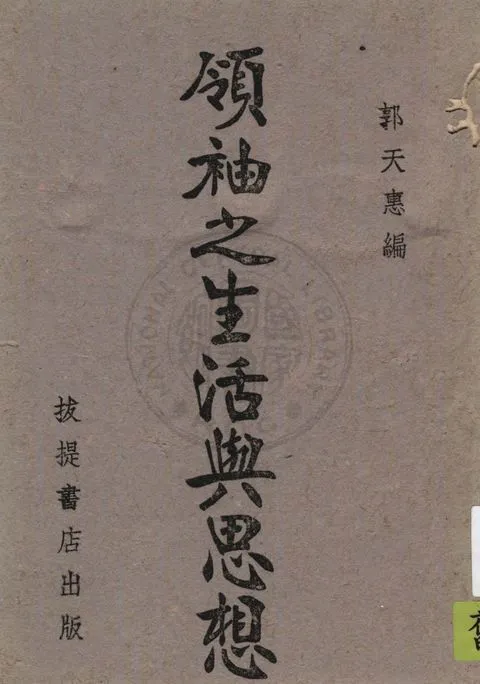 郭天惠編
領袖之生活與思想
拔提書店出版